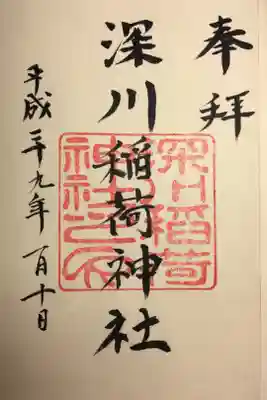 奉拝
深川稲荷神社
平成二十九年一月十日
深川稲荷神社之印